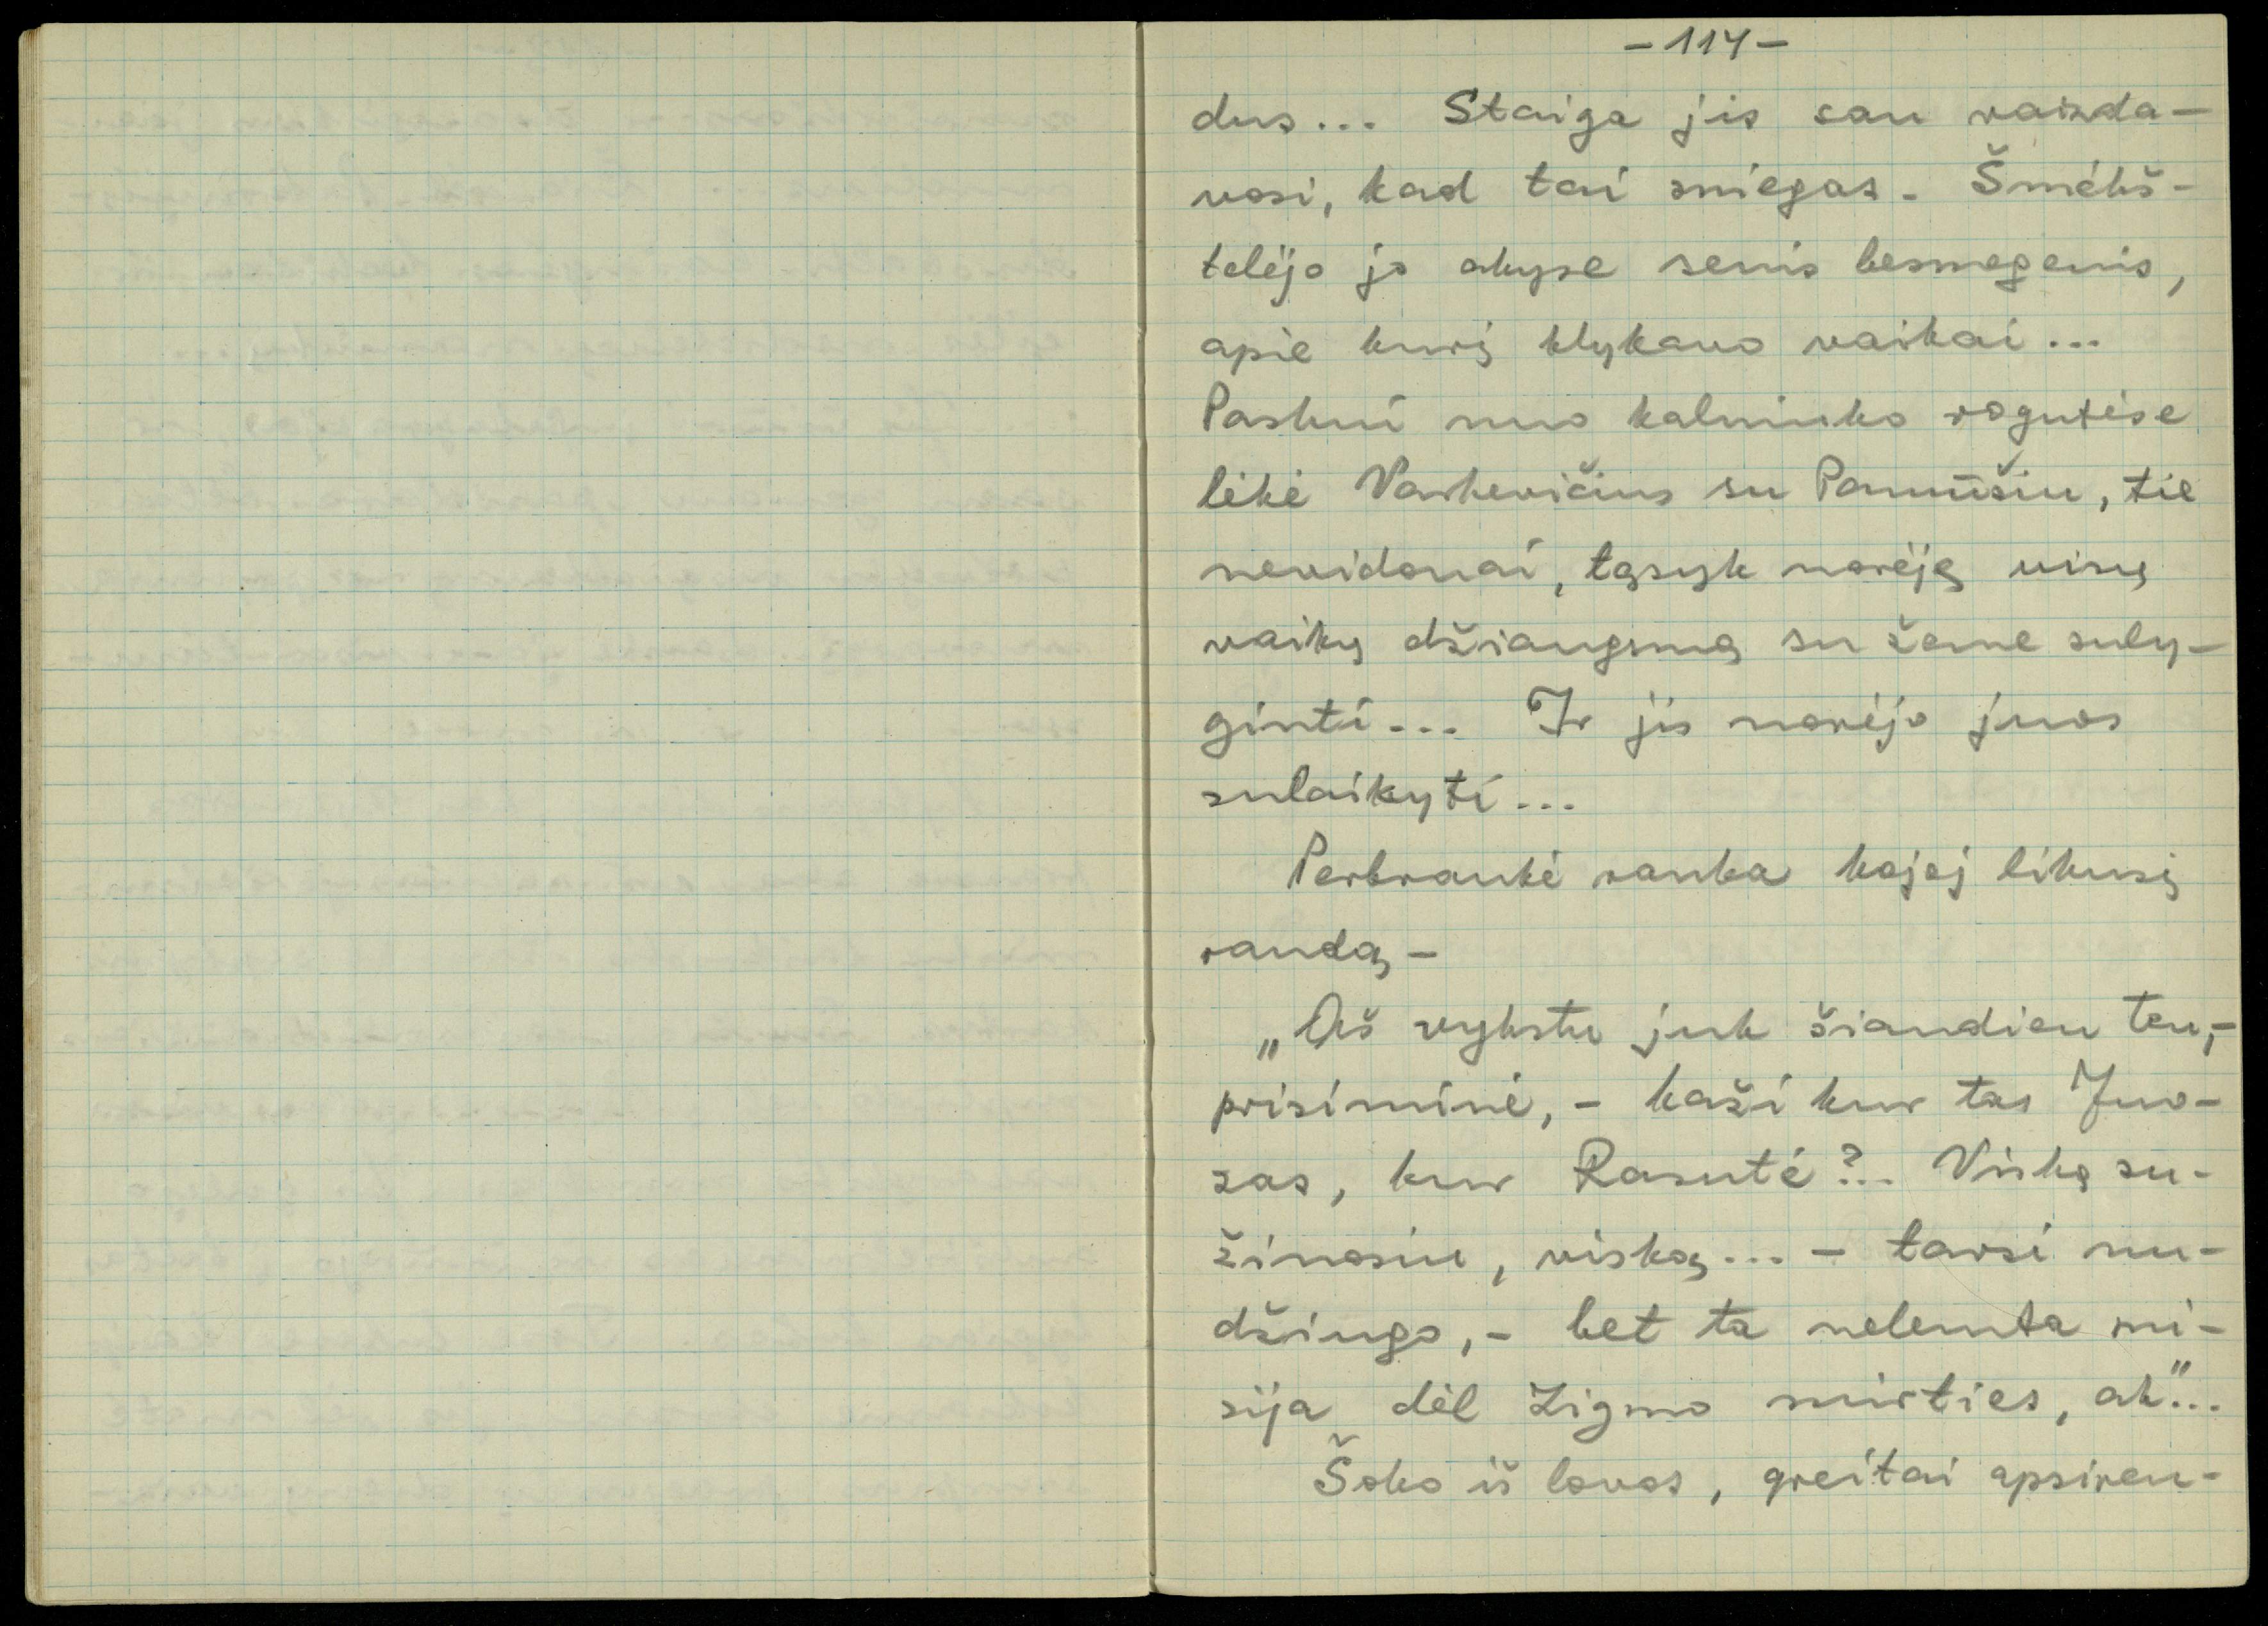 - 114 -
dus... Staiga jis sau vaizda-
vosi, kad tai sniegas. Šmėkš-
telėjo jo akyse senis besmegenis,
apie kurį klykavo vaikai...
Paskui nuo kalniuko rogutėse
lėkė Varkevičius su Pamūšiu, tie
nevidonai, tąsyk norėję visų
vaikų džiaugsmą su žeme suly-
ginti... Ir jis norėjo juos
sulaikyti...
Perbraukė ranka kojoj likusį
randą -
„Aš vykstu juk šiandien ten,-
prisiminė, - kaži kur tas Juo-
zas, kur Rasutė?.. Viską su-
žinosiu, viską... - tarsi nu-
džiugo, - bet ta nelemta mi-
sija dėl Zigmo mirties, ak"...
Šoko iš lovos, greitai apsiren-